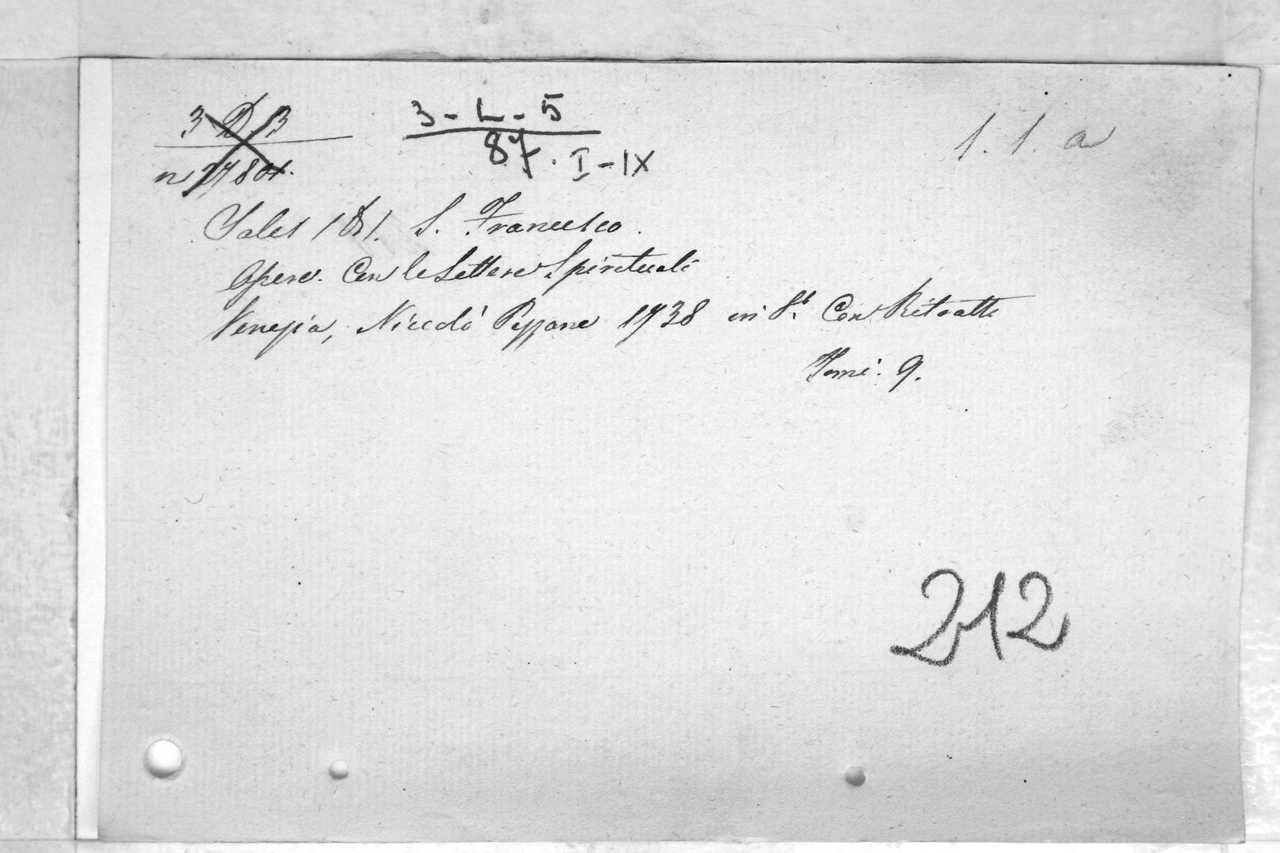 3 D 13
n 2780
3 - L - 5
87. I - IX
1. 1. a
Sales (di). S. Francesco.
Opere. Con le Lettere Spirituali
Venezia, Niccolò Pezzane 1738 in 8.º Con Ritratto
Tomi. 9.
212